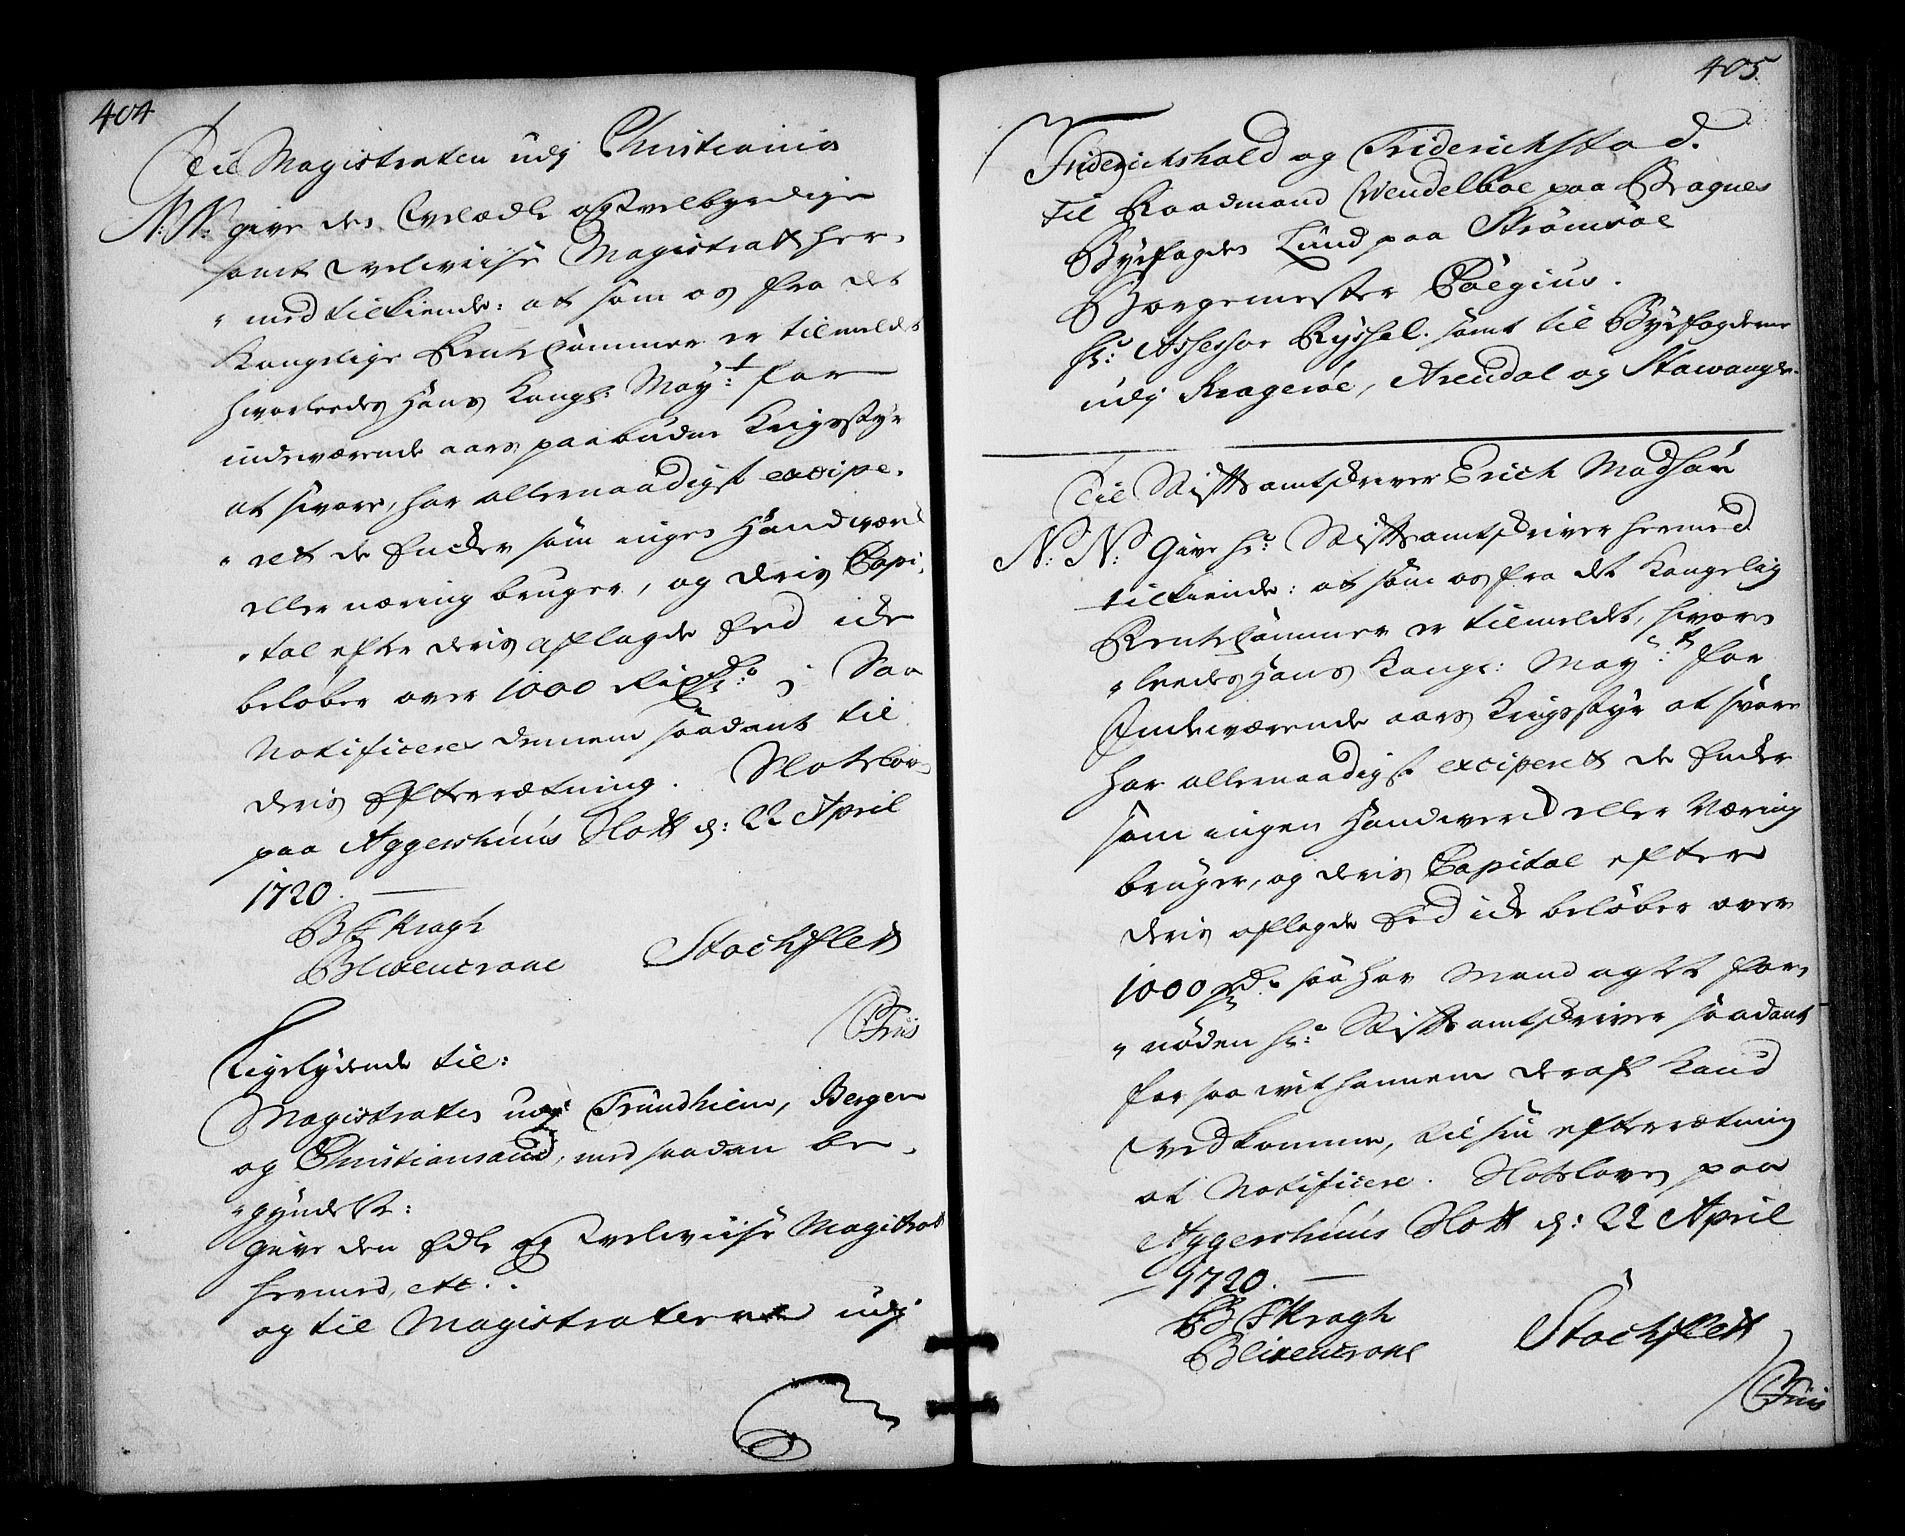 404
Til Magistraten udj Christiania
N: N: give den Velædle og Velbyrdige
samt Velviise Magistrat her-
"med tilkiende: at som os fra det
Kongelige Rentekammer er tilmeldet
hvorleedes Hans Kongl: May:t for
indeværende aars paabudne Krigsstyr
at svare, har allernaadigst excipe-
"ret de Encker som ingen Handværck
eller næring bruger, og deris Capi-
"tal efter deris aflagde Eed icke
beløber over 1000 Rixdr:
Saa
Notificeres dennem saadant til
deris Efterrætning. Slotslov-
paa Aggershuus Slott d: 22 April
1720.
B F Kragh
Blixencrone Stochflett
CFriis
Ligelydende til:
Magistraten udj Trundhiem, Bergen
og Christiansand, med saadan be-
"gyndelse:
give den Edle og Velviise Magistrat
hermed, etc:
og til Magistraterne udj
405.
Friderichshald og Friderichstad.
til Raadmand Wendelboe paa Bragnes
Byefogden Lund paa Strømsøe
Borgemester Pøegius.
Hr: Assessor Ryssel. samt til Byefogderne
udj Kragerøe, Arendal og Stawanger.
Til Stiftamtskriver Erich Madsøn
N: N: Give Hr: Stiftsamtskriver hermed
tilkiende: at som os fra det Kongelig
Rentekammer er tilmeldet, hvor-
"leedes Hans Kongl: May:t for
Indeværende aars Krigsstyr at svare
har allernaadigst exciperet de Encker
som ingen Handverck eller Næring
bruger, og deris Capital efter
deris aflagde Eed icke beløber over
1000 rd. saa har Mand agtet for-
"nøden Hr: Stiftsamtskriver saadant
for saa vit hannem deraf kand
vedkomme, til sin efterrætning
at Notificere. Slotsloven paa
Aggershuus Slott d: 22 April
1720.
B F Kragh
Blixencrone Stochflett
CFriis